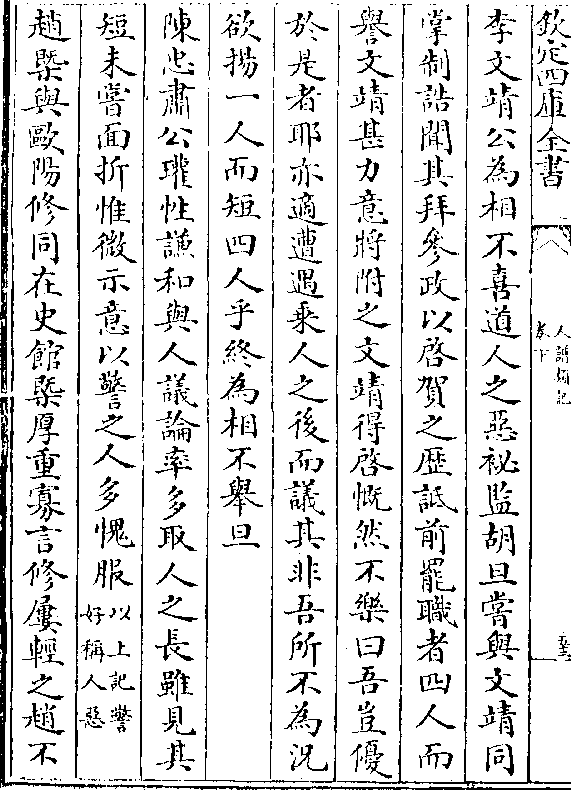 欽定四庫全書
人譜類記
卷下
李文靖公為相不喜道人之惡祕監胡旦嘗與文靖同
掌制誥聞其拜參政以啓賀之歴詆前罷職者四人而
譽文靖甚力意將附之文靖得啓慨然不樂曰吾豈優
於是者耶亦適遭遇乗人之後而議其非吾所不為況
欲揚一人而短四人乎終為相不舉旦
陳忠肅公瓘性謙和與人議論率多取人之長雖見其
短未嘗面折惟微示意以警之人多愧服以上記警好稱人惡
趙槩與歐陽修同在史館槩厚重寡言修屢輕之趙不